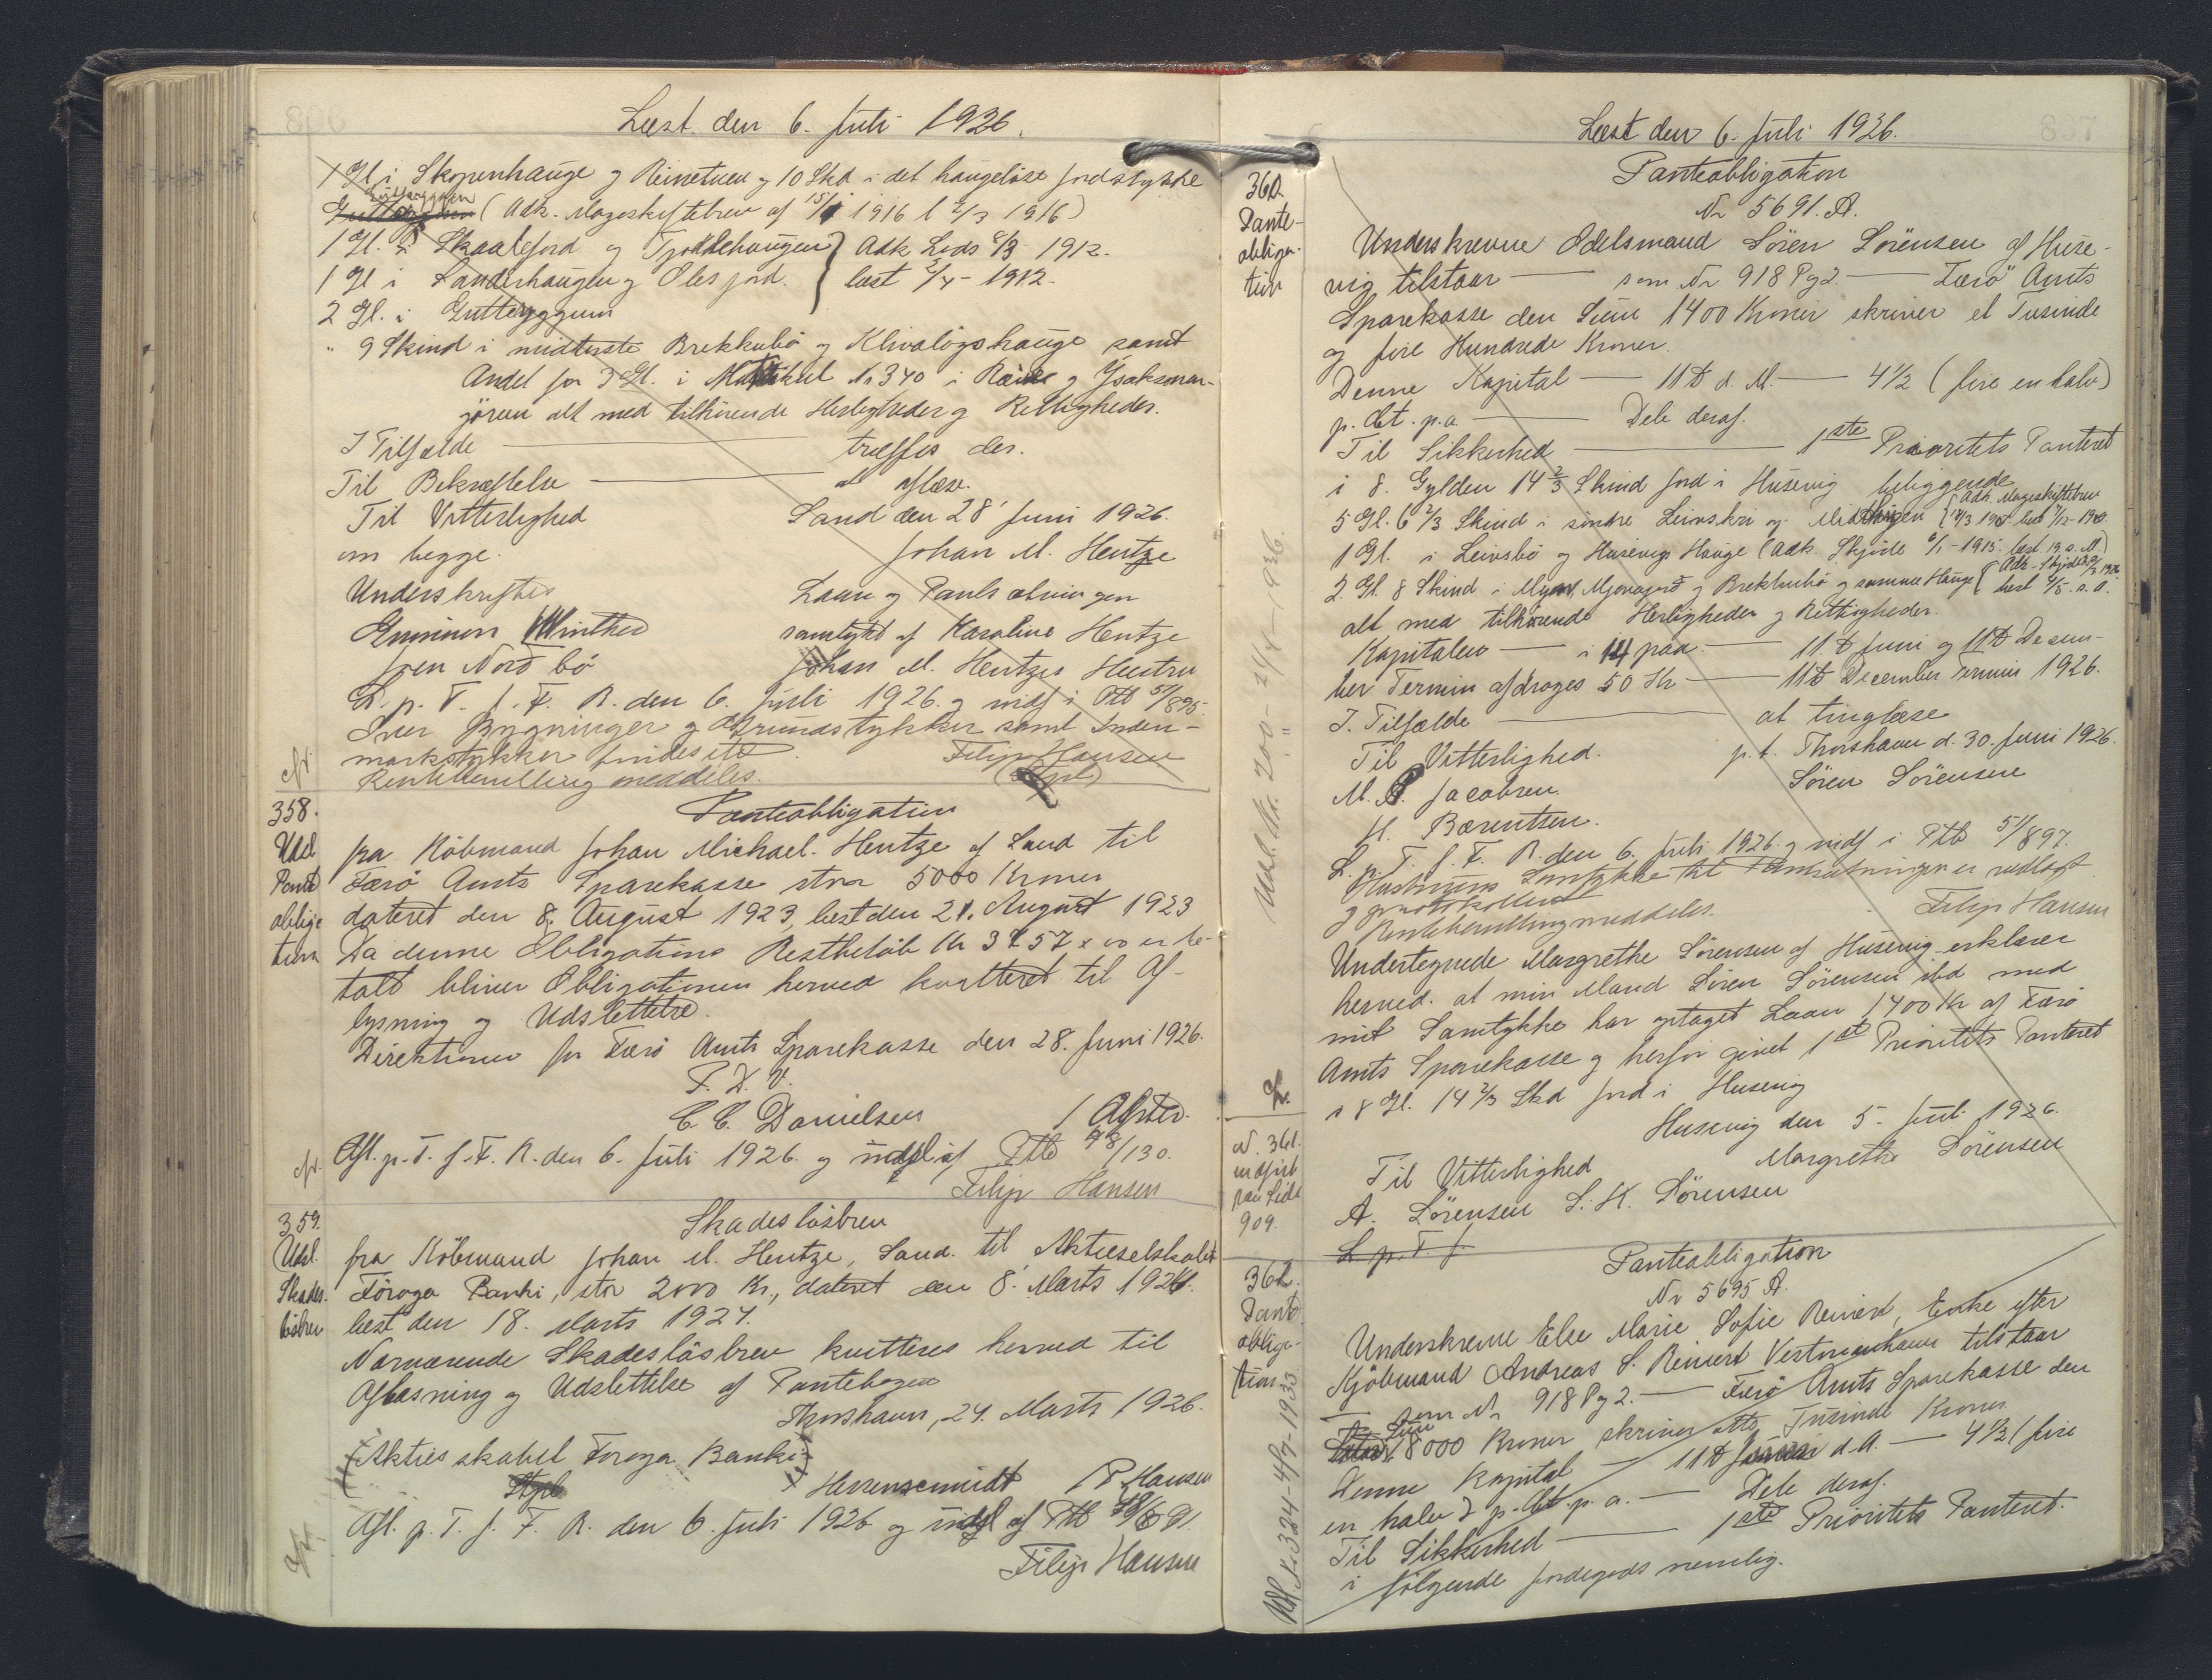 Læst den 6. Juli 1926.
1 Gl i Skopenhauge og Reinetuen og 10 Skd i det haugeløse Jordstykke
(Adk. Mageskiftebrev af 15/1 1916 l 2/3 1916)
1 Gl. i Skaalejord og Tjoldehaugen } Adk Lods 8/3 1912.
1 Gl i Sanderhaugen og Olesjord. } læst 2/4 - 1912.
2 Gl. i Gutteryggum
" 9 Skind i midterste Brekkubø og Klivaløgshauge samt
Andel for 3 Gl. i Matrikul No 340 i og
alt med tilhørende Herligheder og Rettigheder.
I Tilfælde — træffes der.
Til Bekræftelse — at aflæse.
Til Vitterlighed Sand den 28' Juni 1926.
om begge. Johan M. Hentze
Underskrifter Laan og Pantsætningen
Winther samtykt af Karoline Hentze
Joen Norðbø Johan M. Hentzes Hustru
L. p. T. f. F. R. den 6. Juli 1926. og indf i Ptb 51/895.
Over Bygninger og Grundstykker samt Inden-
markstykker findes
Rentebevilling meddeles. Filip Hansen
358. Pantobligation
Udsl. Pantobligation
fra Købmand Johan Michael Hentze af Sand til
Færø Amts Sparekasse stor 5000 Kroner
dateret den 8. August 1923, læst den 21. August 1923
Da denne Obligations Restbeløb Kr 3757 x 00 er be-
talt bliver Obligationen herved kvitteret til Af-
lysning og Udslettelse.
Direktionen for Færø Amts Sparekasse den 28. Juni 1926.
P. D. V.
C. C. Danielsen /
Afl. p. T. f. F. R. den 6. Juli 1926. og indsl af Ptb 48/130.
Filip Hansen
359. Skadesløsbrev
Udsl. Skadesløsbrev
fra Købmand Johan M. Hentze, Sand. til Aktieselskabet
Føroya Banki, stor 2000 Kr., dateret den 8. Marts 1924.
læst den 18. Marts 1924.
Nærværende Skadesløsbrev kvitteres herved til
Aflæsning og Udslettelse af Pantebogen
Thorshavn, 24. Marts 1926.
(Aktieskabet Foroya Banki)
Herrenscmidt / P. Hansen
Afl. p. T. f. F. R. den 6. Juli 1926 og indsl af Ptb
Filip Hansen
Læst den 6. Juli 1926.
360. Pantobligation
Pantobligation
Nr 5691. A.
Underskrevne Odelsmand Sören Sörensen af Huse-
vig tilstaar — som Nr 918 Pg 2. — Færø Amts
Sparekasse den Sum 1400 Kroner skriver et Tusinde
og fire Hundrede Kroner.
Denne Kapital — 11te d. M. — 4 1/2 (fire en halv)
p. Ct. p. a. — Dele deraf.
Til Sikkerhed — 1ste Prioritets Panteret
i 8. Gylden 14 2/3 Skind Jord i Husevig beliggende
5 Gl. 6 2/3 Skind i sindre Leivskri og (Adk. Mageskiftebrev
1 Gl. i Leivsbø og Husevigs Hauge (Adk. Skjøde 6/1 - 1915. læst 19. s. M.)
2. Gl 8 Skind i og Brekkubø og samme Hauge (Adk. Skjøde læst 4/5. s. A.
alt med tilhørende Herligheder og Rettigheder.
Kapitalen — i 14 paa — 11te Juni og 11te Decem-
ber Termin afdrages 50 Kr — 11te December Termin 1926.
I. Tilfælde — at tinglæse
Til Vitterlighed. p. t. Thorshavn d. 30. Juni 1926.
M. Jacobsen. Sören Sörensen
H. Bærentsen.
L. p. T. f. F. R. den 6. Juli 1926. og indf i Ptb 51/897.
Hustruens Samtykke til Pantsætningen er vedlagt
og protokolleret
Rentebevilling meddeles. Filip Hansen
Undertegnede Margrethe Sörensen af Husevig erklærer
herved. at min Mand Sören Sörensen ibd med
mit Samtykke har optaget Laan 1400 Kr af Færø
Amts Sparekasse og herfor givet 1ste Prioritets Panteret
i 8 Gl. 14 2/3 Skd Jord i Husevig
Husevig den 5. Juli 1926.
Til Vitterlighed Margrethe Sörensen
A. Sörensen S. K. Sörensen
L. p. T. f
Udsl. Nr. 200 - 21/4 - 1936.
N. 361. indført paa Side 909.
362. Pantobligation
Pantobligation
Nr 5695 A.
Underskrevne Else Marie Sofie Reinert, Enke efter
Kjøbmand Andreas S. Reinert Vestmanhavn tilstaar
— som Nr 918 Pg 2. — Færø Amts Sparekasse den
Sum 8000 Kroner skriver otte Tusinde Kroner
Denne Kapital — 11te d. A. — 4 1/2 (fire
en halv) p. Ct. p. a. — Dele deraf.
Til Sikkerhed — 1ste Prioritets Panteret.
i følgende Jordegods nemlig.
Udsl. Nr 324 - 4/7 - 1933